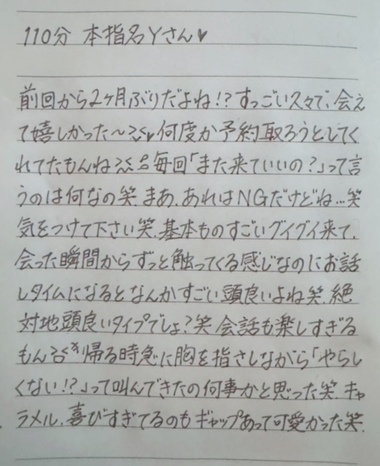 110分 本指名Yさん♥
前回から2ヶ月ぶりだよね!?すっごい久々で、会え
て嬉しかった〜 何度か予約取ろうとしてく
れてたもんね 毎回「また来ていいの?」って言
うのは何なの笑 まあ、あれはNGだけどね…笑
気をつけて下さい笑 基本ものすごいグイグイ来て、
会った瞬間からずっと触ってくる感じなのにお話
しタイムになるとなんかすごい頭良いよね笑 絶
対地頭良いタイプでしょ?笑 会話も楽しすぎる
もん 帰る時急に胸を指さしながら「やらし
くない!?」って叫んできたの何事かと思った笑 キャ
ラメル、喜びすぎてるのもギャップあって可愛かった笑